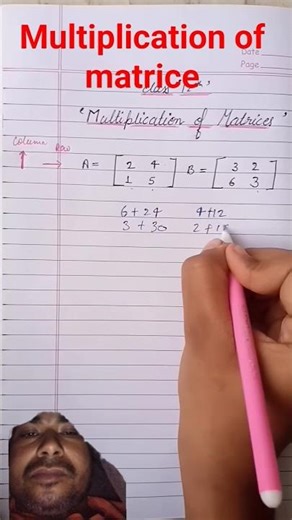 Multiplication of
matrice
Date
Page
Class 12th
"Multiplication of Matrices"
Column Row
A = [ 2 4 B = [ 3 2
1 5 ] 6 3 ]
6 + 24 4 + 12
3 + 30 2 + 15